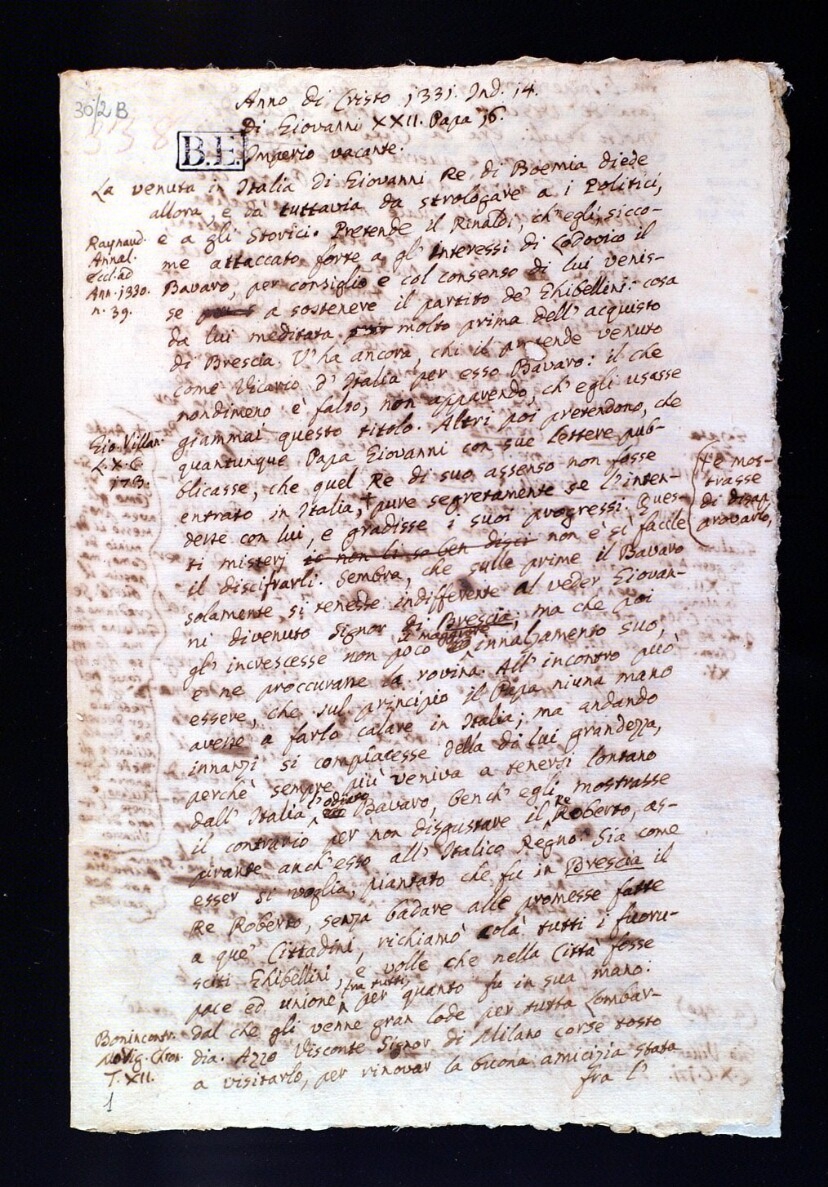 30/2 B
338
B.E.
Anno di Cristo 1331. Ind. 14.
di Giovanni XXII. Papa 16.
Imperio vacante.
La venuta in Italia di Giovanni Re di Boemia diede
allora, e dà tuttavia da strologare a i Politici,
e a gli Storici. Pretende il Rinaldi, ch'egli sicco-
me attaccato forte a gl'interessi di Lodovico il
Bavaro, per consiglio e col consenso di lui venis-
se a sostenere il partito de' Ghibellini: cosa
da lui meditata molto prima dell'acquisto
di Brescia. V'ha ancora, chi il pretende venuto
come Vicario d'Italia per esso Bavaro: il che
nondimeno è falso, non apparendo, ch'egli usasse
giammai questo titolo. Altri poi pretendono, che
quantunque Papa Giovanni con sue lettere pub-
blicasse, che quel Re di suo assenso non fosse
entrato in Italia, + pure segretamente se l'inten-
desse con lui, e gradisse i suoi progressi. Ques-
ti misterj io non li so ben discir non è sì facile
il discifrarli. Sembra, che sulle prime il Bavaro
solamente si tenesse indifferente al veder Giovan-
ni divenuto Signor di Brescia, ma che poi
gl'increscesse non poco il maggiore innalzamento suo,
e ne proccurasse la rovina. All'incontro può
essere, che sul principio il Papa niuna mano
avesse a farlo calare in Italia; ma andando
innanzi si compiacesse della di lui grandezza,
perchè sempre più veniva a tenersi lontano
dall'Italia l'odiato Bavaro, bench'egli mostrasse
il contrario per non disgustare il Re Roberto, as-
pirante anch'esso all'Italico Regno. Sia come
esser si voglia, piantato che fu in Brescia il
Re Roberto, senza badare alle promesse fatte
a que' Cittadini, richiamò colà tutti i fuoru-
sciti Ghibellini, e volle che nella Città fosse
pace ed unione fra tutti, per quanto fu in sua mano:
dal che gli venne gran lode per tutta Lombar-
dia. Azzo Visconte Signor di Milano corse tosto
a visitarlo, per rinovar la buona amicizia stata
fra l'
Raynaud.
Annal.
Eccl. ad
Ann. 1330.
n. 39.
Gio: Villan.
L. X. C.
173.
+ e mos-
trasse
di disap-
provarlo,
Bonincontr.
Morig. Chron.
T. XII.
1